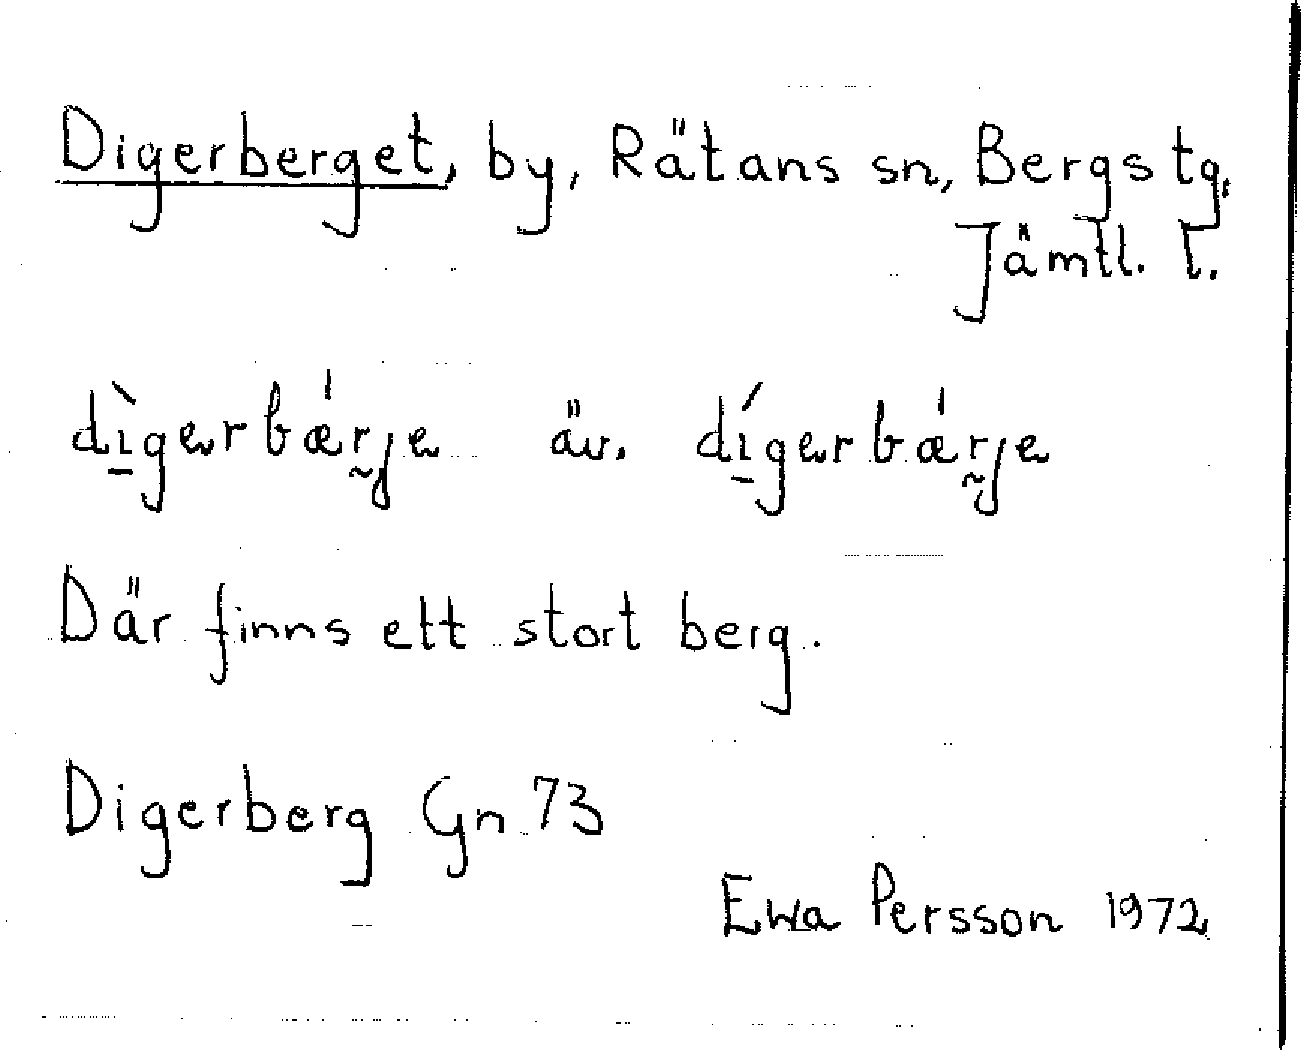 Digerberget, by, Rätans sn, Bergs tg,
Jämtl. l.
dì̠gerbæ̍r̰je äv. dí̠gerbæ̍r̰je
Där finns ett stort berg.
Digerberg Gn 73
Ewa Persson 1972